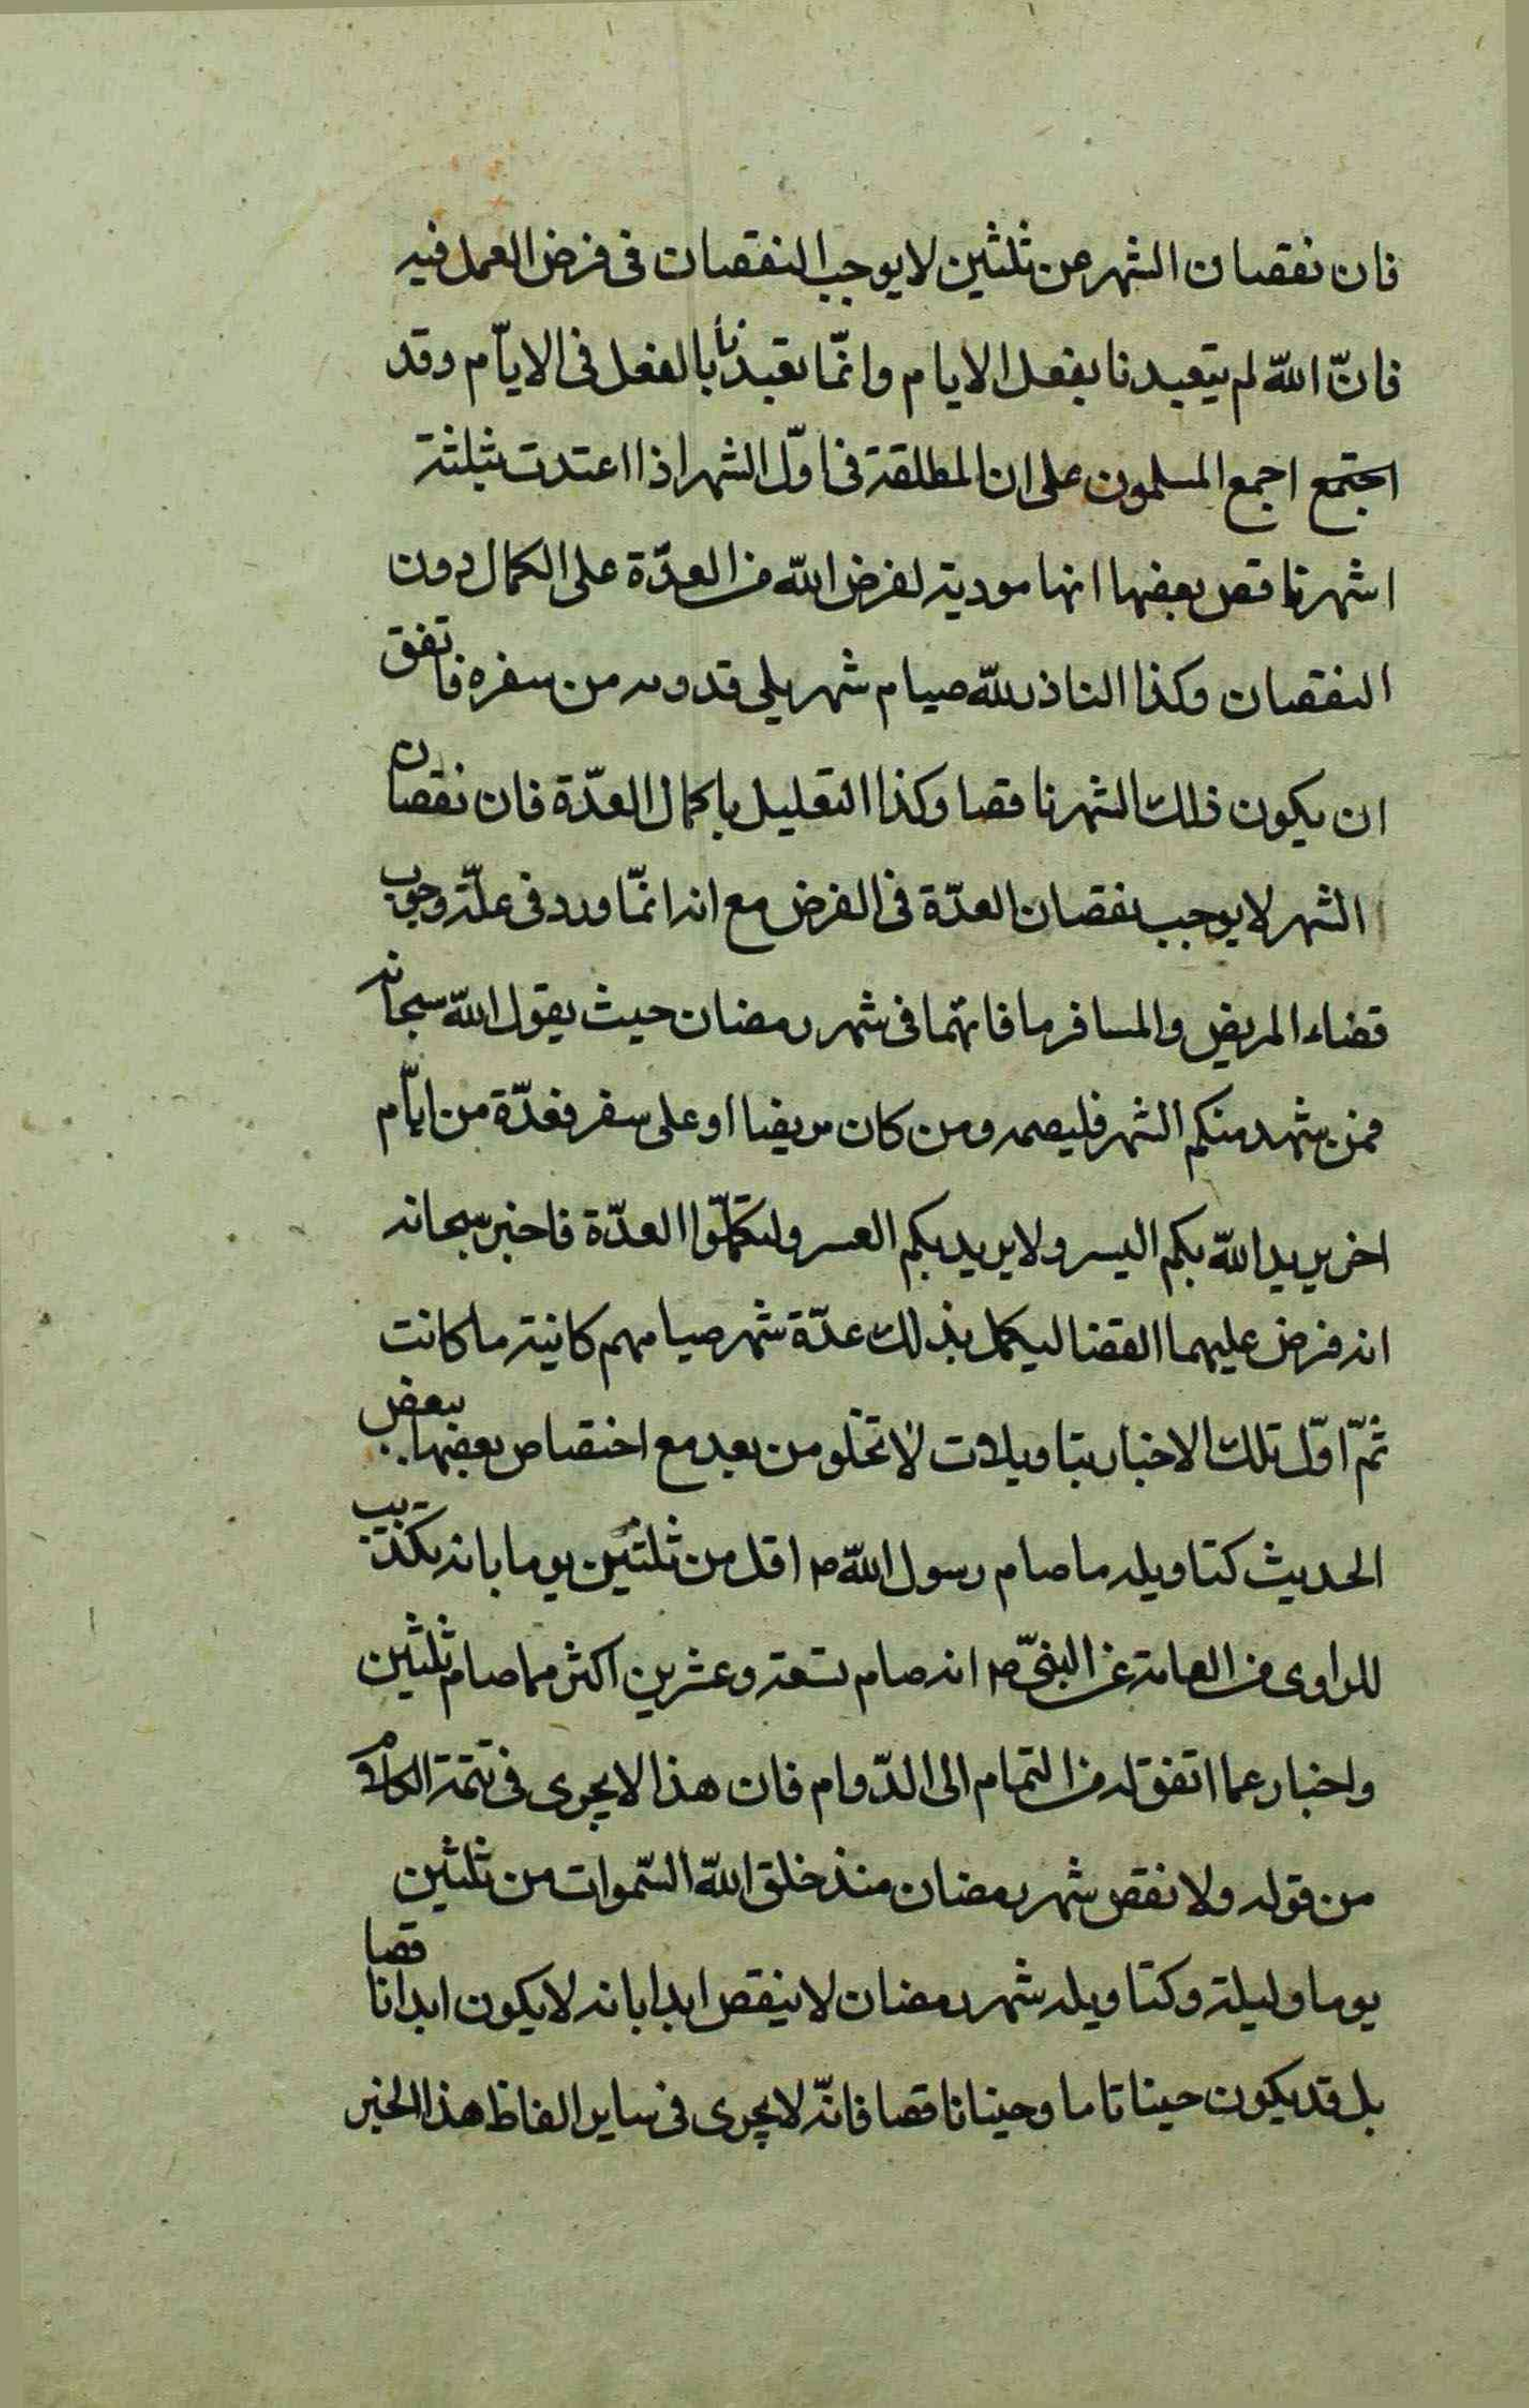 فان نقصان الشهر عن ثلثين لا يوجب النقصان فى فرض العمل فيه
فانّ اللّه لم يتعبدنا بفعل الايام وانمّا تعبدنا بالفعل فى الايّام وقد
اجتمع اجمع المسلمون على ان المطلقة فى اوّل الشهر اذا اعتدت بثلثة
اشهر ناقص بعضها انها مودية لفرض اللّه من العدّة على الكمال دون
النقصان وكذا الناذر للّه صيام شهر يلى قدومه من سفره فاتفق
ان يكون ذلك الشهر ناقصا وكذا التعليل باكمال العدّة فان نقصان
الشهر لا يوجب نقصان العدّة فى الفرض مع انه انمّا ورد فى علّة وجوب
قضاء المريض والمسافر ما فاتهما فى شهر رمضان حيث يقول اللّه سبحانه
فمن شهد منكم الشهر فليصمه ومن كان مريضا او على سفر فعدّة من ايّام
اخر يريد اللّه بكم اليسر ولا يريد بكم العسر ولتكمّلوا العدّة فاخبر سبحانه
انه فرض عليهما القضا ليكمل بذلك عدّة شهر صيامهم كانية ما كانت
ثمّ اوّل تلك الاخبار بتاويلات لا تخلو من بعد مع اختصاص بعضها ببعض
الحديث كتاويله ما صام رسول اللّه ص اقل من ثلثين يوما بانه تكذيب
للراوى من العامة عن النبىّ ص انه صام تسعة وعشرين اكثر مما صام ثلثين
واخبار عما اتفق له من التمام الى الدّوام فان هذا لا يجرى فى تتمة الكلام
من قوله ولا نقص شهر رمضان منذ خلق اللّه السّموات من ثلثين
يوما وليلة وكتاويله شهر رمضان لا ينقص ابدا بانه لا يكون ابدا ناقصا
بل قد يكون حينا تاما وحينا ناقصا فانّه لا يجرى فى ساير الفاظ هذا الخبر